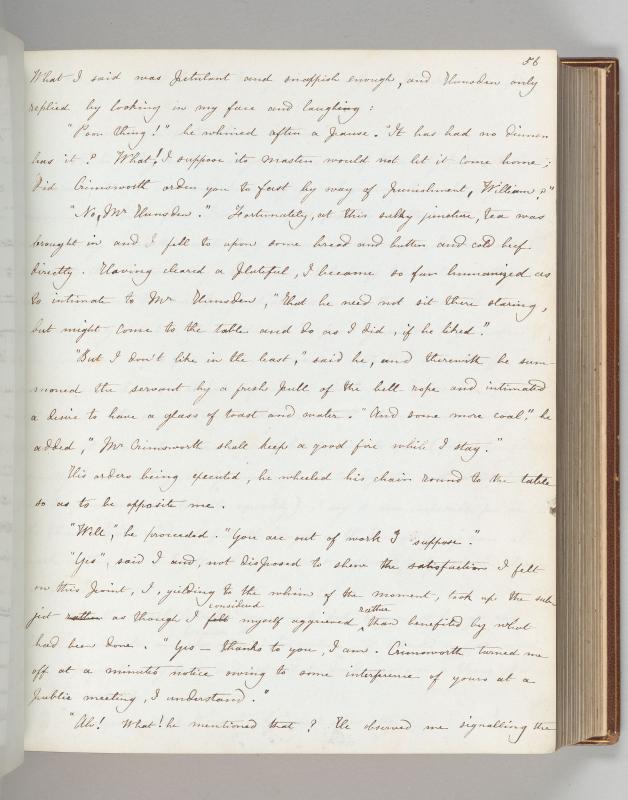 56
What I said was petulant and snappish enough, and Hunsden only
replied by looking in my face and laughing:
"Poor thing!" he whined after a pause. "It has had no dinner
has it? What! I suppose its master would not let it come home;
Did Crimsworth order you to fast by way of punishment, William?"
"No, Mr Hunsden." Fortunately, at this sulky juncture, tea was
brought in and I fell to upon some bread and butter and cold beef
directly. Having cleared a plateful, I became so far humanized as
to intimate to Mr Hunsden, "that he need not sit there staring,
but might come to the table and do as I did, if he liked".
"But I don't like in the least," said he, and therewith he sum-
moned the servant by a fresh pull of the bell rope and intimated
a desire to have a glass of toast and water. "And some more coal," he
added, "Mr Crimsworth shall keep a good fire while I stay."
His orders being executed, he wheeled his chair round to the table
so as to be opposite me.
"Well", he proceeded. "You are out of work I suppose".
"Yes", said I and, not disposed to shew the satisfaction I felt
on this point, I, yielding to the whim of the moment, took up the sub-
ject rather as though I felt considered myself aggrieved rather than benefited by what
had been done. "Yes — thanks to you, I am. Crimsworth turned me
off at a minute's notice owing to some interference of yours at a
public meeting, I understand."
"Ah! What! he mentioned that? He observed me signalling the